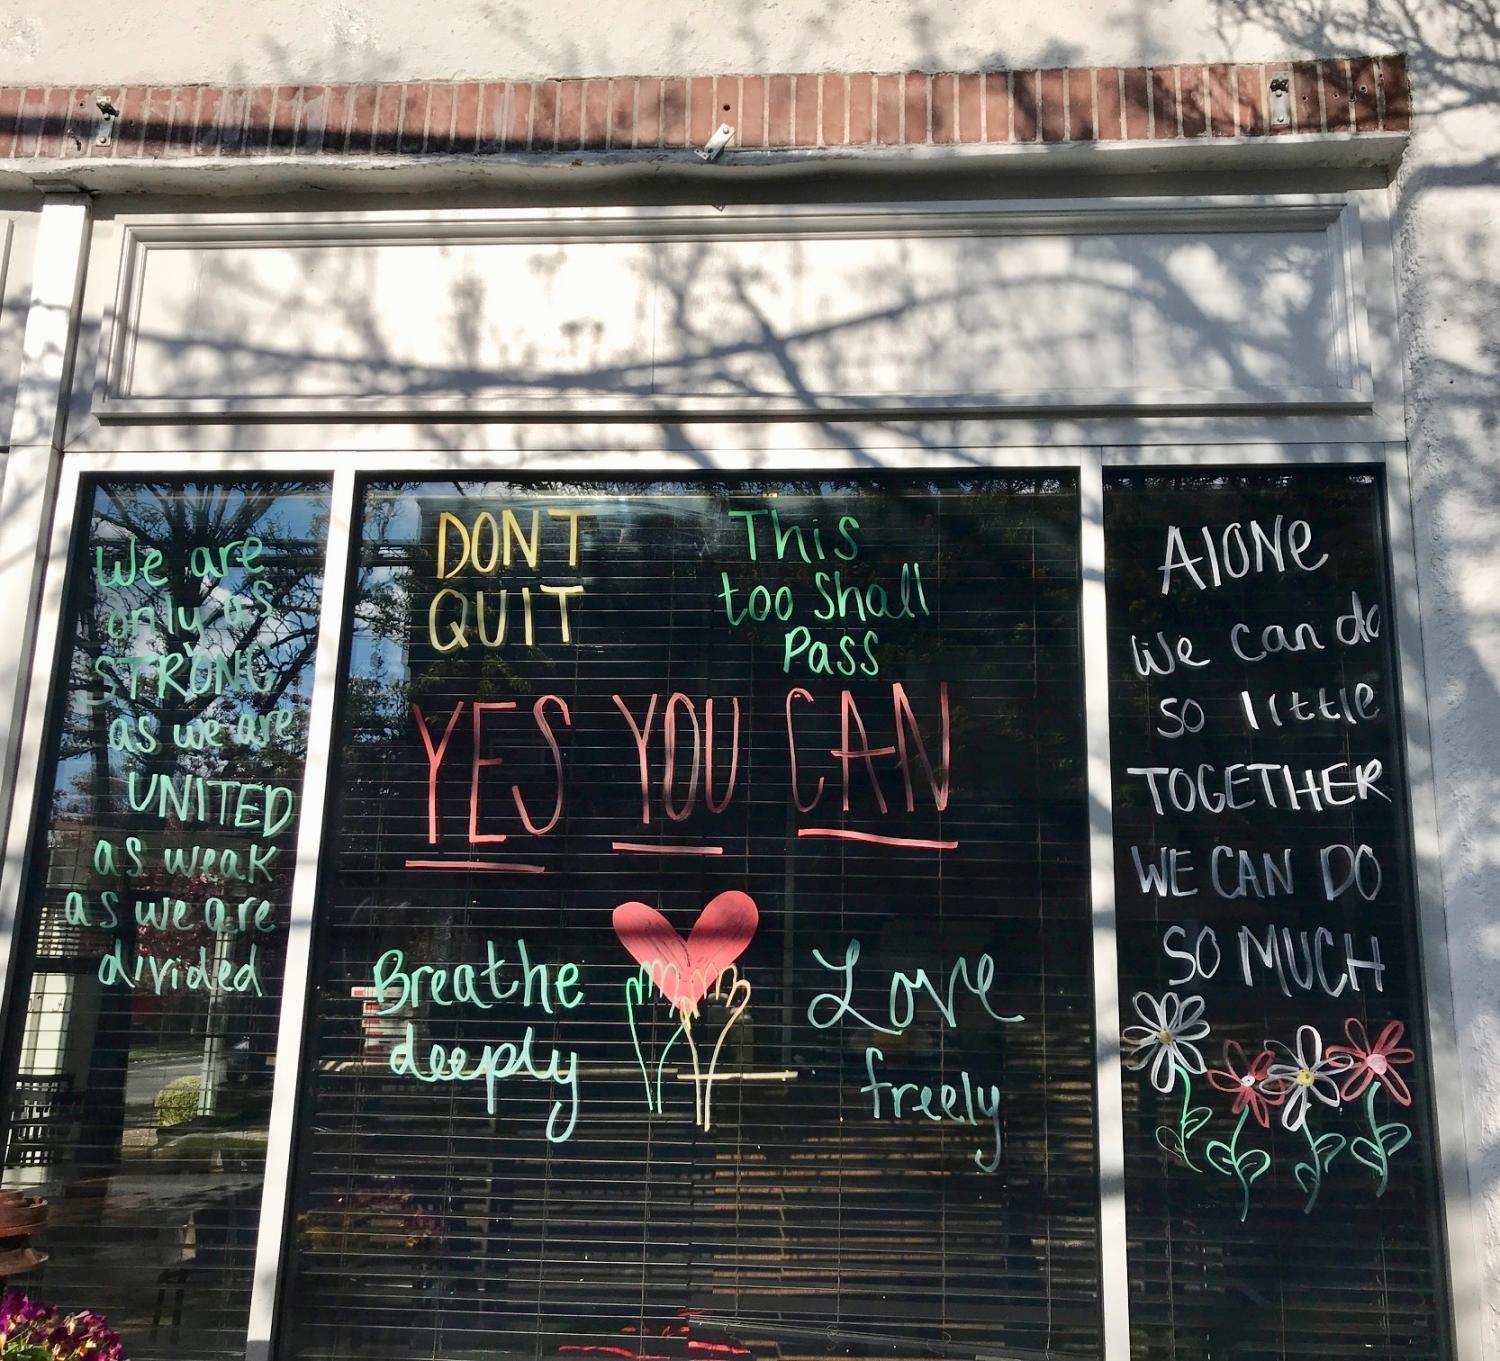 We are
only as
STRONG
as we are
UNITED
as weak
as we are
divided
DONT
QUIT
This
too Shall
Pass
YES YOU CAN
Breathe
deeply
Love
freely
AlONe
We Can do
so little
TOGETHER
WE CAN DO
SO MUCH